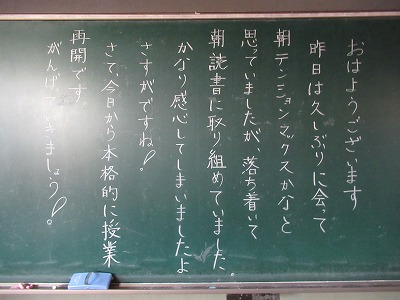 おはようございます
昨日は久しぶりに会って
朝テンションマックスかなと
思っていましたが、落ち着いて
朝読書に取り組めていました。
かなり感心してしまいましたよ
さすがですね!
さて、今日から本格的に授業
再開です。
がんばっていきましょう!